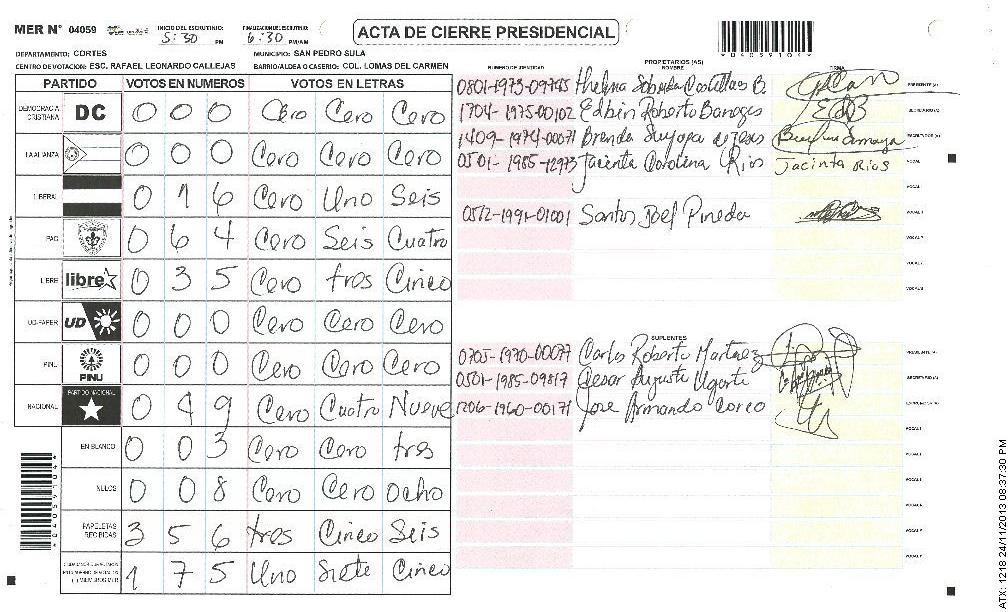 MER N° 04059 INICIO DEL ESCRUTINIO: 5:30 PM FINALIZACION DEL ESCRUTINIO: 6:30 PM/AM
ACTA DE CIERRE PRESIDENCIAL
DEPARTAMENTO: CORTES MUNICIPIO: SAN PEDRO SULA
CENTRO DE VOTACION: ESC. RAFAEL LEONARDO CALLEJAS BARRIO/ALDEA O CASERIO: COL. LOMAS DEL CARMEN
PARTIDO VOTOS EN NUMEROS VOTOS EN LETRAS
DEMOCRACIA CRISTIANA DC 0 0 0 Cero Cero Cero
LA ALIANZA 0 0 0 Cero Cero Cero
LIBERAL 0 1 6 Cero Uno Seis
PAC 0 6 4 Cero Seis Cuatro
LIBRE libre 0 3 5 Cero tres Cinco
UD-FAPER UD 0 0 0 Cero Cero Cero
PINU PINU 0 0 0 Cero Cero Cero
NACIONAL PARTIDO NACIONAL 0 4 9 Cero Cuatro Nueve
EN BLANCO 0 0 3 Cero Cero tres
NULOS 0 0 8 Cero Cero ocho
PAPELETAS RECIBIDAS 3 5 6 tres Cinco Seis
1 7 5 Uno Siete Cinco
PROPIETARIOS (AS)
NUMERO DE IDENTIDAD NOMBRE FIRMA
PRESIDENTE (A)
1704-1975-00102 Edbin Roberto SECRETARIO (A)
1409-1974-00071 Brenda ESCRUTADOR (A)
0501-1985-12973 Jacinta Carolina Rios Jacinta Rios VOCAL
VOCAL
0512-1991-01001 Santos Joel Pineda VOCAL
SUPLENTES
0703-1970-00077 Carlos Roberto Martinez PRESIDENTE (A)
0501-1985-09817 Cesar Augusto Ugarte SECRETARIO (A)
1206-1960-00171 Jose Armando ESCRUTADOR (A)
ATX: 1218 24/11/2013 08:37:30 PM